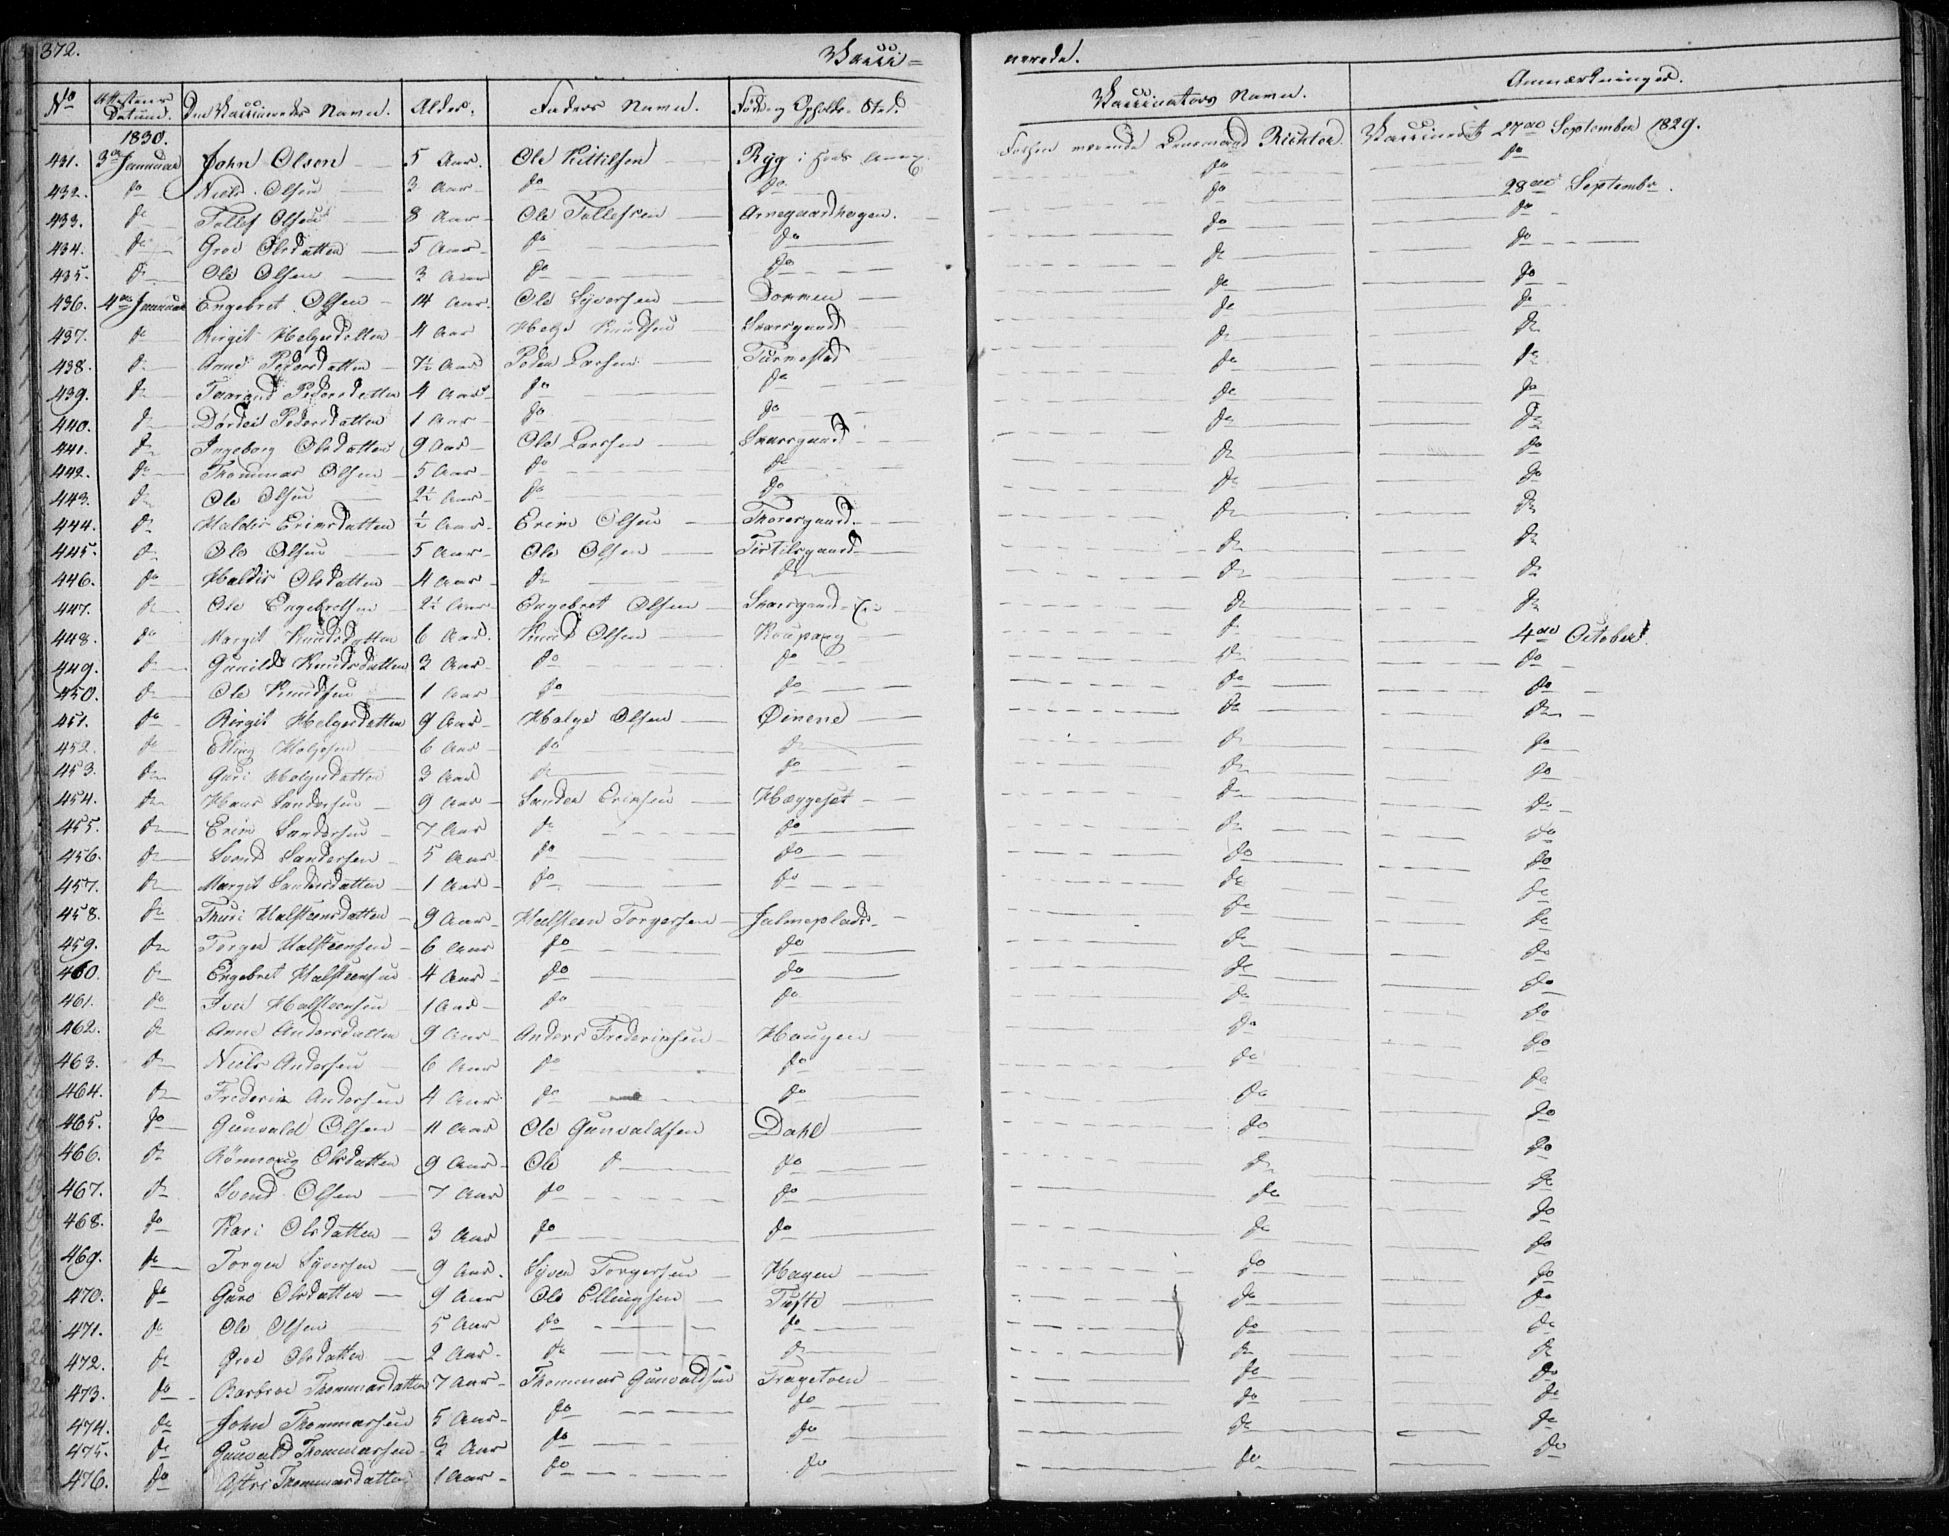 372. Vacci= nerede.
No Attestens Datum. Den Vaccineredes Navn. Alder. Faders Navn. Føde og Opholds Sted. Vaccinators Navn. Anmærkninger.
1830.
431. 3de Januar John Olsen 5 Aar Ole Kittilsen Ryg i Hols Annex. Lensmand Richter Vaccineret 27de September 1829.
432. do Niels Olsen 3 Aar do do do do
433. do Tollef Olsen 8 Aar Ole Tollefsen Arnegaardhagen. do 28de September.
434. do Groe Olsdatter 5 Aar do do do do
435. do Ole Olsen 3 Aar do do do do
436. 4de Januar Engebret Olsen 14 Aar Ole Syversen Dommen do do
437. do Birgit Helgesdatter 4 Aar Helge Knudsen Skarsgaard do do
438. do Anne Pedersdatter 7½ Aar Peder Larsen Turnestad do do
439. do Taarand Pedersdatter 4 Aar do do do do
440. do Dordei Pedersdatter 1 Aar do do do do
441. do Ingeborg Olsdatter 9 Aar Ole Larsen Skarsgaard do do
442. do Thommas Olsen 5 Aar do do do do
443. do Ole Olsen 2½ Aar do do do do
444. do Haldis Eriksdatter ½ Aar Erik Olsen Thoresgaard do do
445. do Ole Olsen 5 Aar Ole Olsen Tistilsgaard do do
446. do Haldis Olsdatter 4 Aar do do do do
447. do Ole Engebretsen 2½ Aar Engebret Olsen Skarsgaard do do
448. do Margit Knudsdatter 6 Aar Knud Olsen Koupang do 4de October
449. do Gunild Knudsdatter 3 Aar do do do do
450. do Ole Knudsen 1 Aar do do do do
451. do Birgit Helgesdatter 9 Aar Helge Olsen Øinene do do
452. do Elling Helgesen 6 Aar do do do do
453. do Guri Helgesdatter 3 Aar do do do do
454. do Hans Sandersen 9 Aar Sander Eriksen Hæggeset do do
455. do Erik Sandersen 7 Aar do do do do
456. do Svend Sandersen 5 Aar do do do do
457. do Margit Sandersdatter 1 Aar do do do do
458. do Thuri Halsteensdatter 9 Aar Halsteen Torgersen Jalmeplads do do
459. do Torger Halsteensen 6 Aar do do do do
460. do Engebret Halsteensen 4 Aar do do do do
461. do Iver Halsteensen 1 Aar do do do do
462. do Anne Andersdatter 9 Aar Anders Frederiksen Haugen do do
463. do Niels Andersen 6 Aar do do do do
464. do Frederik Andersen 4 Aar do do do do
465. do Gunvald Olsen 11 Aar Ole Gunvaldsen Dahl do do
466. do Rønnoug Olsdatter 9 Aar Ole do do do do
467. do Svend Olsen 7 Aar do do do do
468. do Kari Olsdatter 3 Aar do do do do
469. do Torger Syversen 9 Aar Syver Torgersen Hagen do do
470. do Guro Olsdatter 9 Aar Ole Ellingsen Tufte do do
471. do Ole Olsen 5 Aar do do do do
472. do Groe Olsdatter 2 Aar do do do do
473. do Barbroe Thommasdatter 7 Aar Thommas Gunvaldsen Tragetoen do do
474. do John Thommassen 5 Aar do do do do
475. do Gunvald Thommassen 3 Aar do do do do
476. do Astri Thommasdatter 1 Aar do do do do